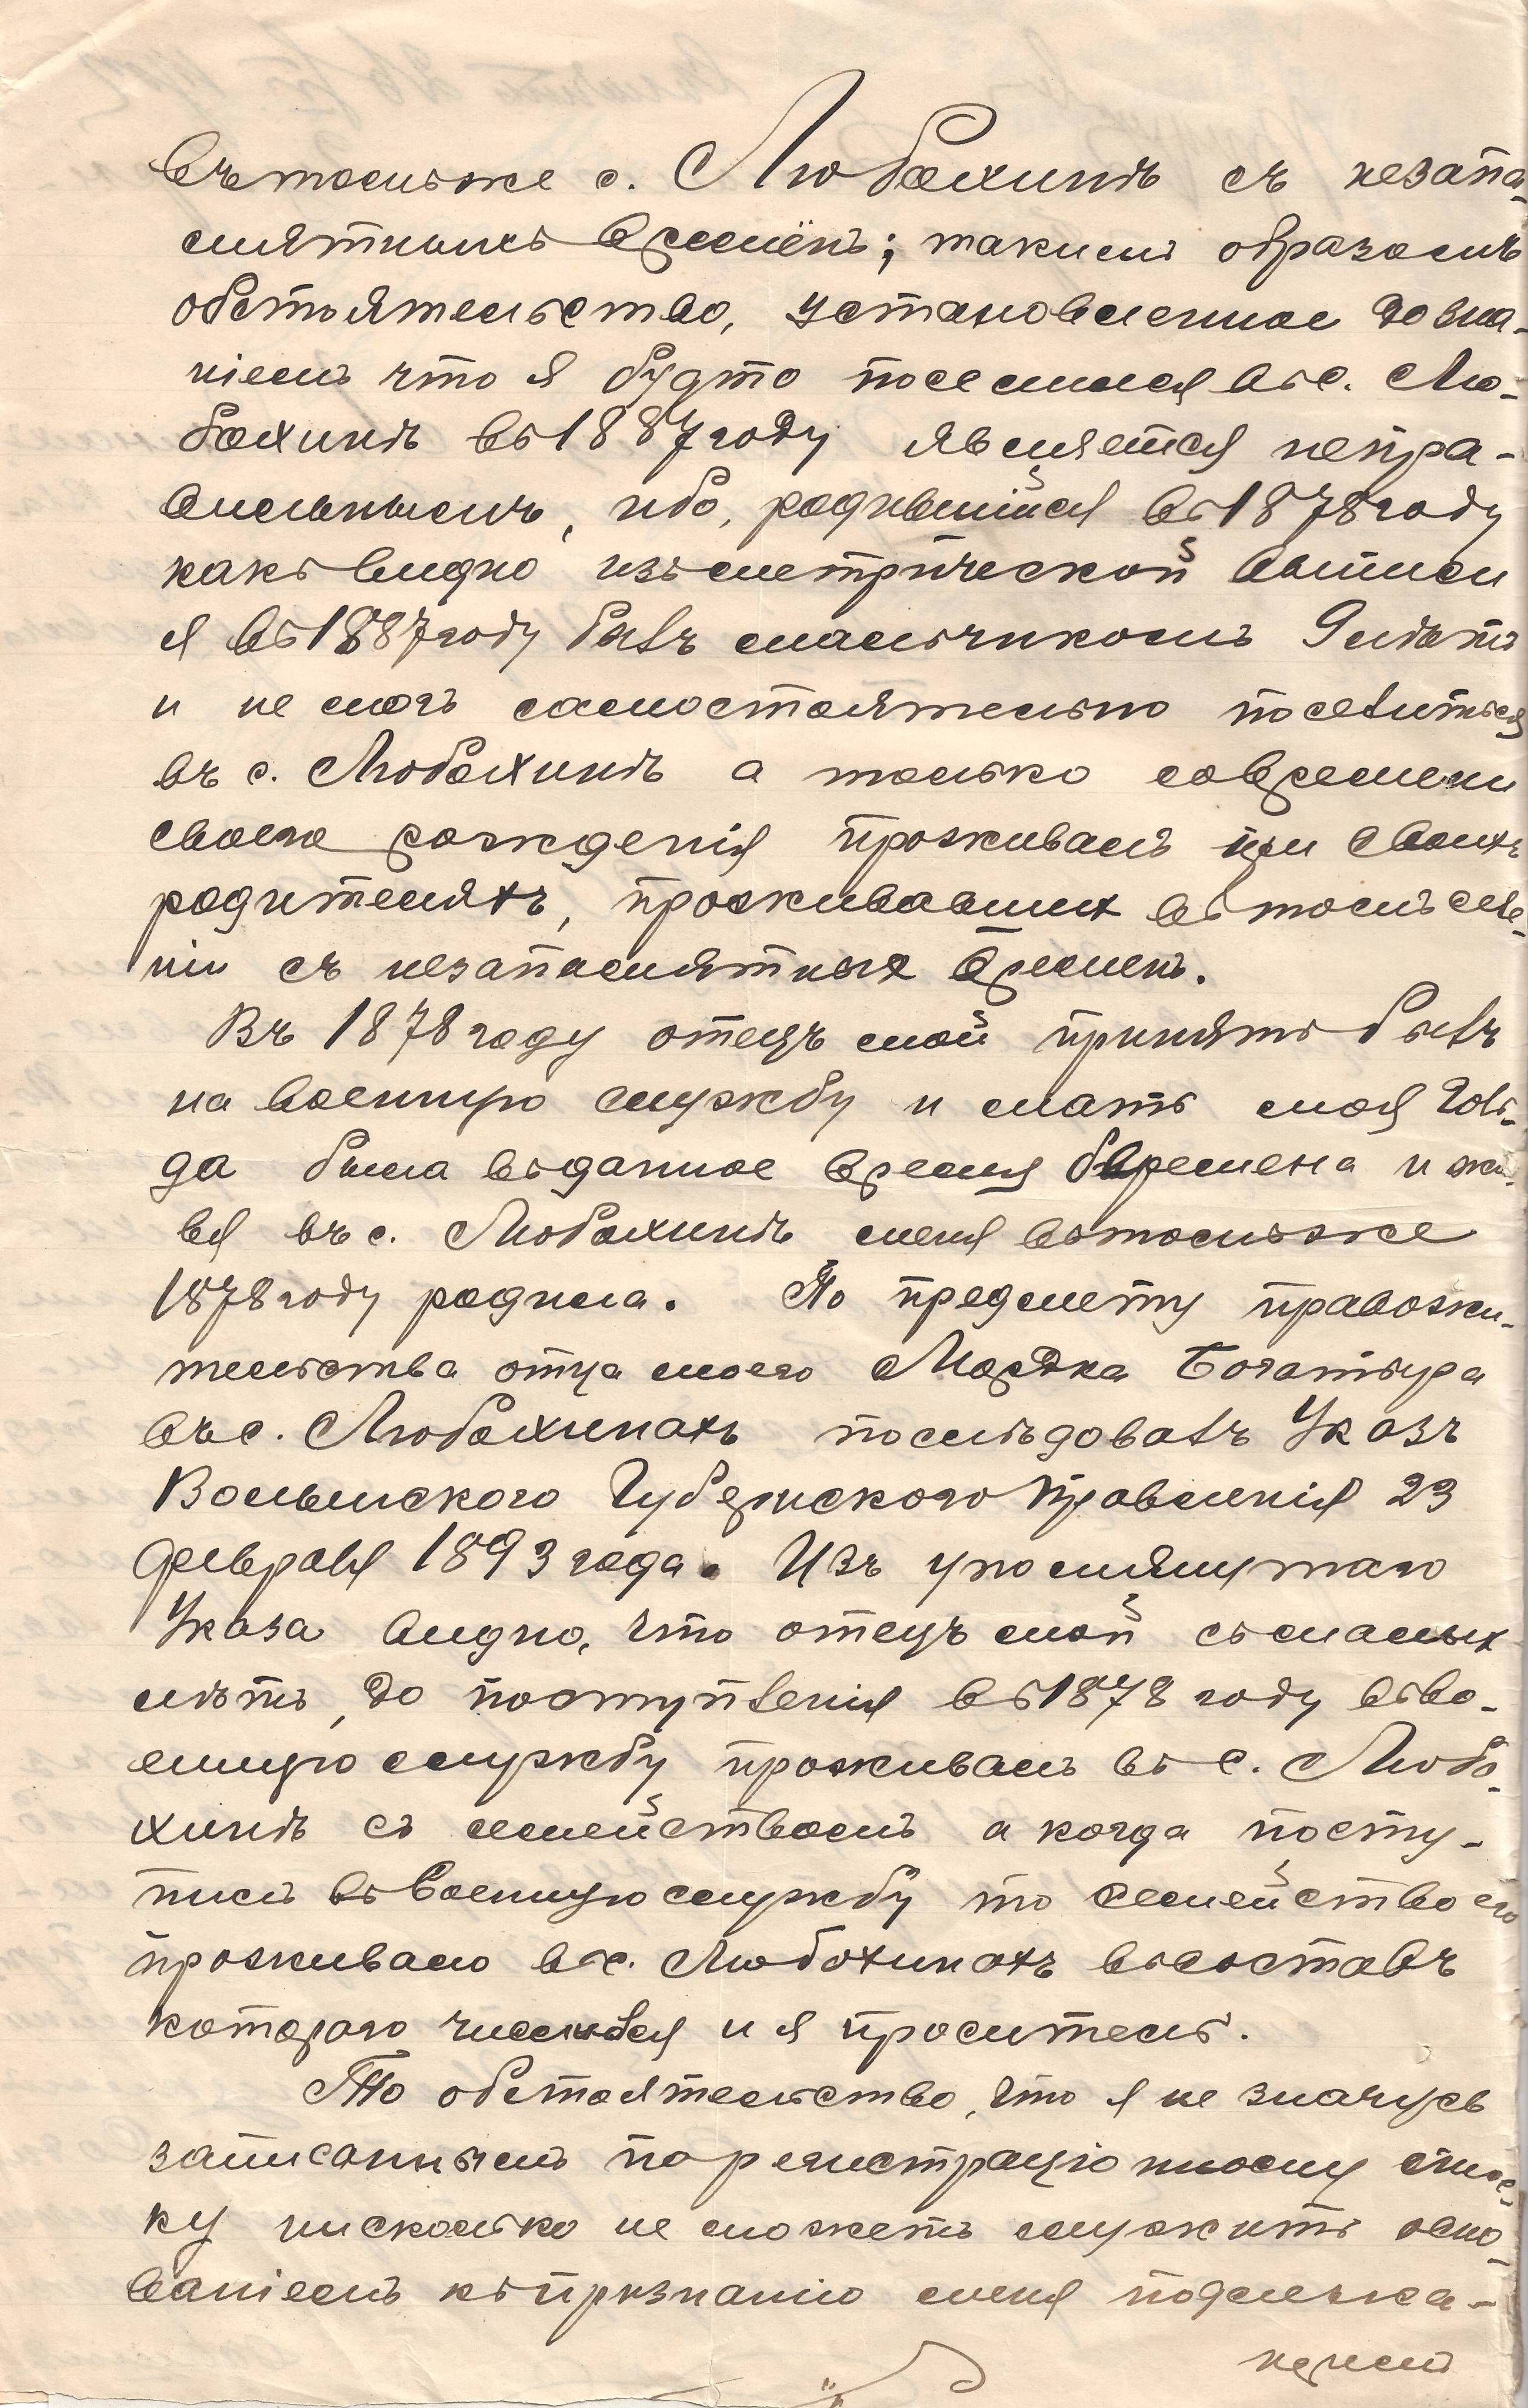 въ томъ же с. Любохинѣ съ незапа-
мятныхъ времёнъ; такимъ образомъ
обстоятельство, установленное дозна-
ніемъ что я будто поселился въ с. Лю-
бохинѣ въ 1887 году является непра-
вильнымъ, ибо, родившійся въ 1878 году
какъ видно изъ метрической выписи
я въ 1887 году былъ мальчикомъ 9 лѣтъ
и не могъ самостоятельно поселиться
въ с. Любохинѣ а только со времени
своего рожденія проживалъ при своихъ
родителяхъ, проживавших въ томъ селе-
ніи съ незапамятных времен.
Въ 1878 году отецъ мой принятъ былъ
на военную службу и мать моя Голь-
да была въ данное время беремена и жи-
вя въ с. Любохинѣ меня въ томъ же
1878 году родила. По предмету правожи-
тельства отца моего Мордка Богатыра
въ с. Любохинахъ послѣдовалъ Указъ
Волынского Губернского Правленія 23
февраля 1893 года. Изъ упомянутаго
Указа видно, что отецъ мой съ малых
лѣтъ, до поступленія въ 1878 году въ во-
енную службу проживалъ въ с. Любо-
хинѣ съ семействомъ а когда посту-
пилъ въ военную службу то семейство его
проживало в с. Любохинахъ въ составѣ
которого числился и я проситель.
То обстоятельство, что я не значусь
записаннымъ по регистраціонному спис-
ку нисколько не можетъ служить осно-
ваніемъ къ признанію меня подлежа-